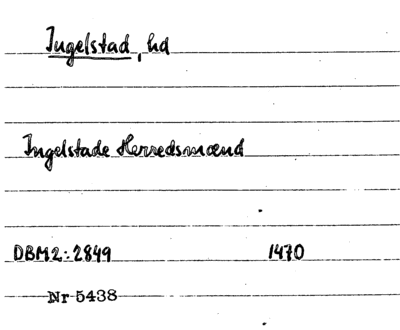 Ingelstad, hd
Ingelstade Herredsmænd
DBM2:2849 1470
Nr 5438